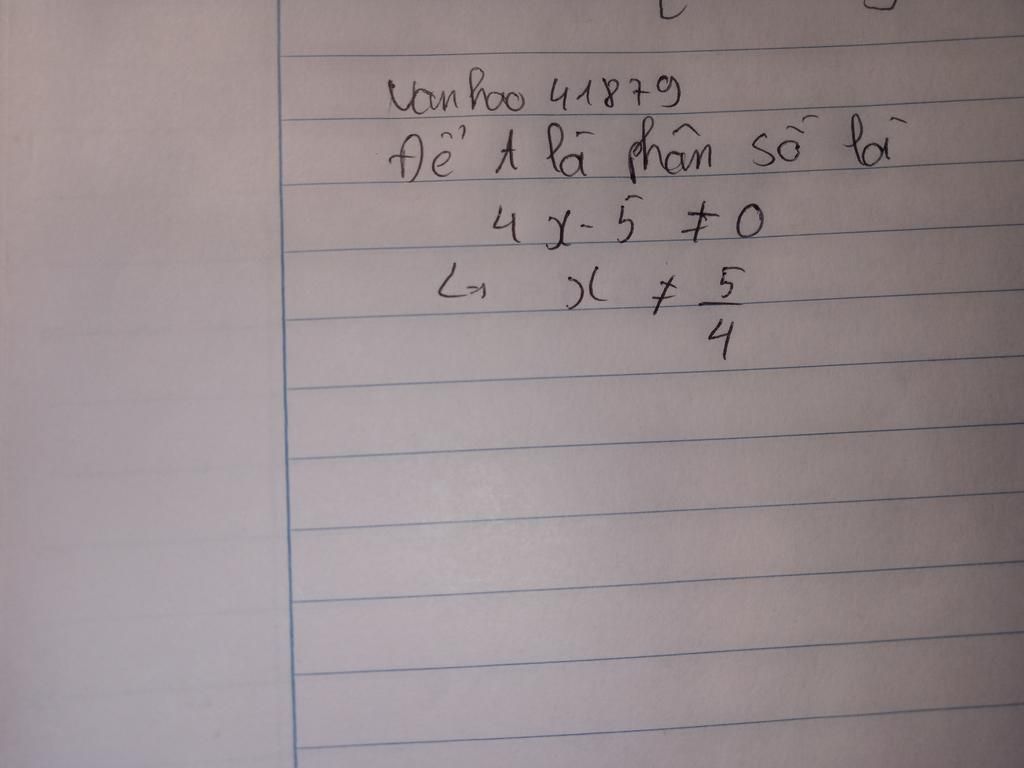 vanhoo 41879
Để A là phân số là
4x - 5 ≠ 0
<=> x ≠ 5/4